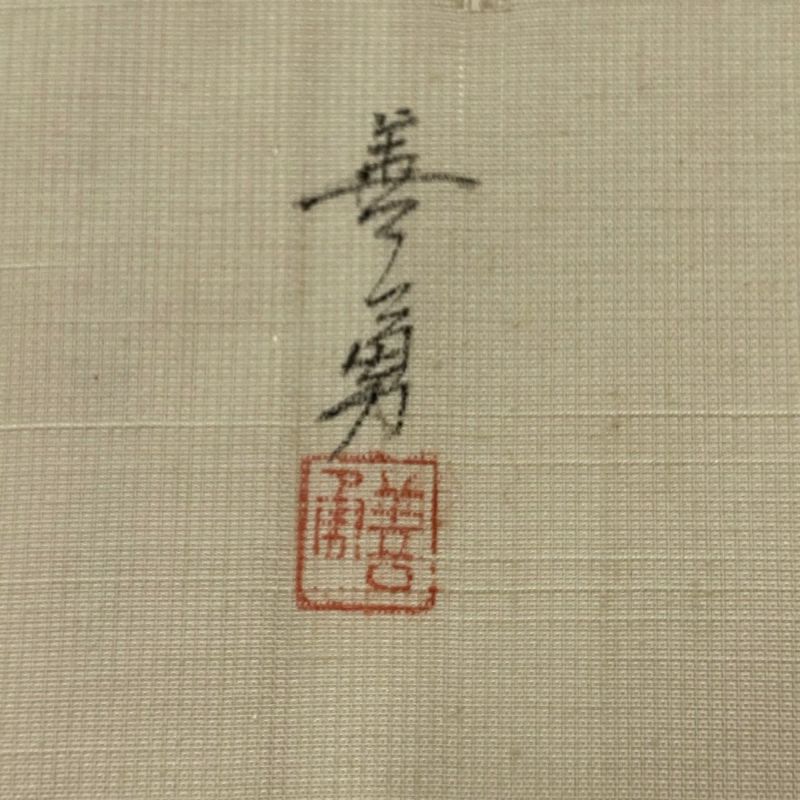 善勇
善勇